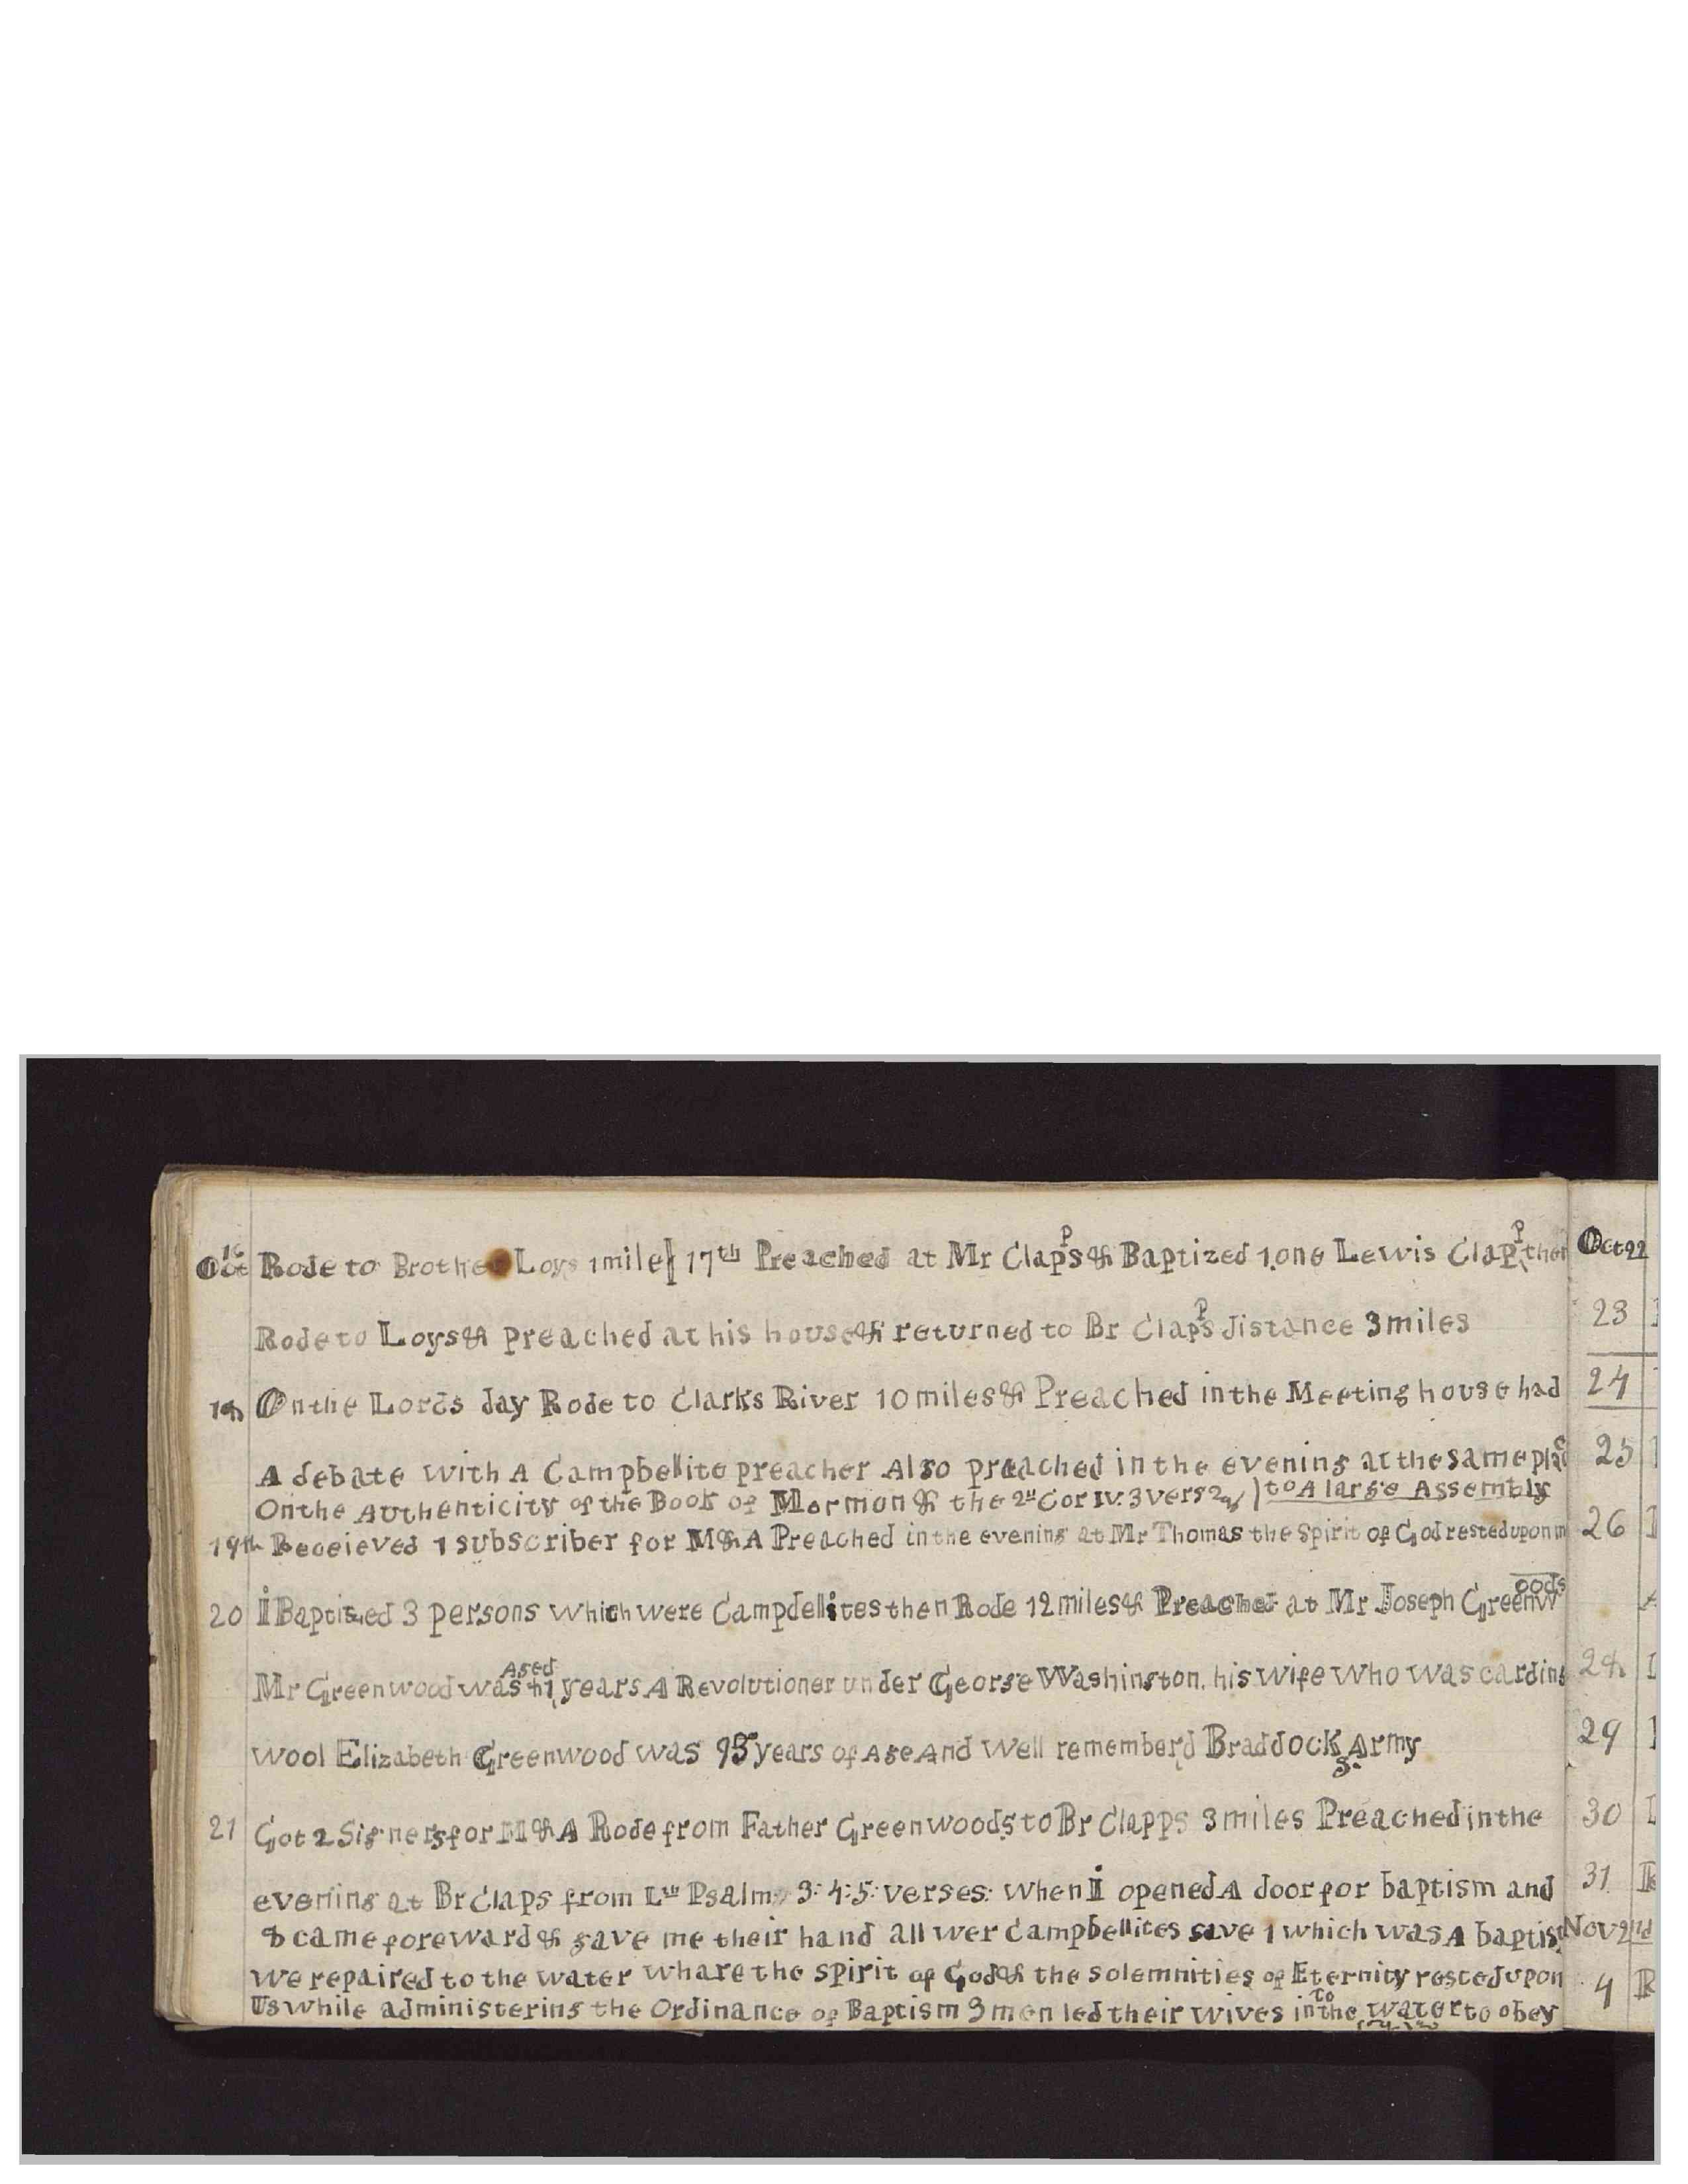 Oct 16 Rode to Brother Loys 1 mile 17th Preached at Mr Clapps & Baptized 1 one Lewis Clapp then
Rode to Loys & preached at his house & returned to Br Clapps distance 3 miles
18 On the Lords day Rode to Clarks River 10 miles & Preached in the Meeting house had
A debate with A Campbellite preacher Also preached in the evening at the same place
On the Authenticity of the Book of Mormon & the 2d Cor IV. 3 vers to A large Assembly
19th Receieved 1 subscriber for M & A Preached in the evening at Mr Thomas the Spirit of God rested upon
20 I Baptized 3 persons which were Campdellites then Rode 12 miles & Preached at Mr Joseph Greenwoods
Mr Greenwood was Aged years A Revolutioner under George Washington. his wife who was carding
wool Elizabeth Greenwood was 93 years of Age And well rememberd Braddocks Army
21 Got 2 Signers for M & A Rode from Father Greenwoods to Br Clapps 3 miles Preached in the
evening at Br Claps from Lth Psalm 3: 4: 5: verses: when I opened A door for baptism and
8 came foreward & gave me their hand all wer Campbellites save 1 which was A baptist
we repaired to the water whare the spirit of God & the solemnities of Eternity rested upon
Us while administering the Ordinance of Baptism 3 men led their wives into the water to obey
Oct 22
23
24
25
26
28
29
30
31
Nov 2nd
4 R